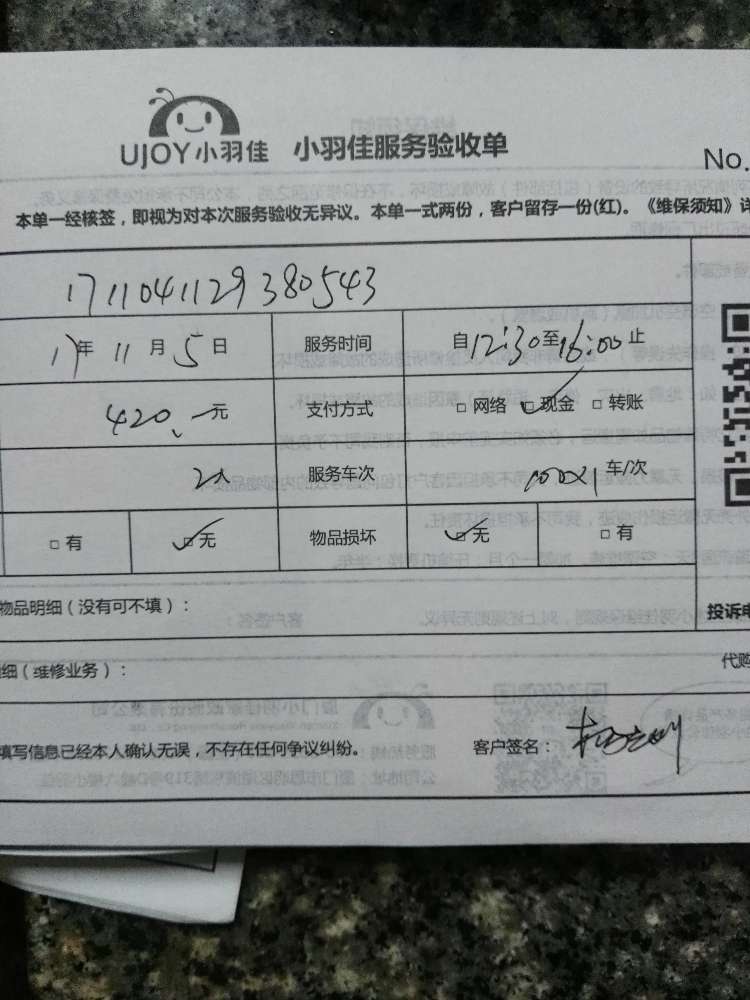 UJOY小羽佳 小羽佳服务验收单
No.
本单一经核签，即视为对本次服务验收无异议。本单一式两份，客户留存一份(红)。《维保须知》详
1711041129380543
17年 11月 5日 服务时间 自12:30至16:00止
420.一元 支付方式 □网络 □现金 □转账
2人 服务车次 车/次
□有 □无 物品损坏 □无 □有
物品明细（没有可不填）：
投诉电
细（维修业务）：
代购
填写信息已经本人确认无误，不存在任何争议纠纷。 客户签名：